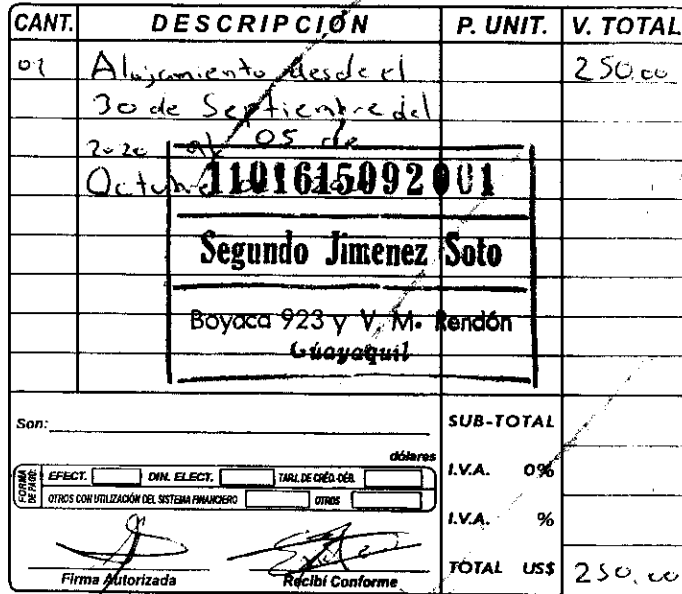 CANT. DESCRIPCIÓN P. UNIT. V. TOTAL
01 Alojamiento desde el 250.00
30 de Septiembre del
2020 al 05 de
Octubre
1101615092001
Segundo Jimenez Soto
Boyaca 923 y V. M. Rendón
Guayaquil
Son:
dólares
SUB-TOTAL
FORMA DE PAGO: EFECT. DIN. ELECT. TARJ. DE CRÉD.-DÉB.
I.V.A. 0%
OTROS CON UTILIZACIÓN DEL SISTEMA FINANCIERO OTROS
I.V.A. %
Firma Autorizada Recibí Conforme
TOTAL US$ 250.00